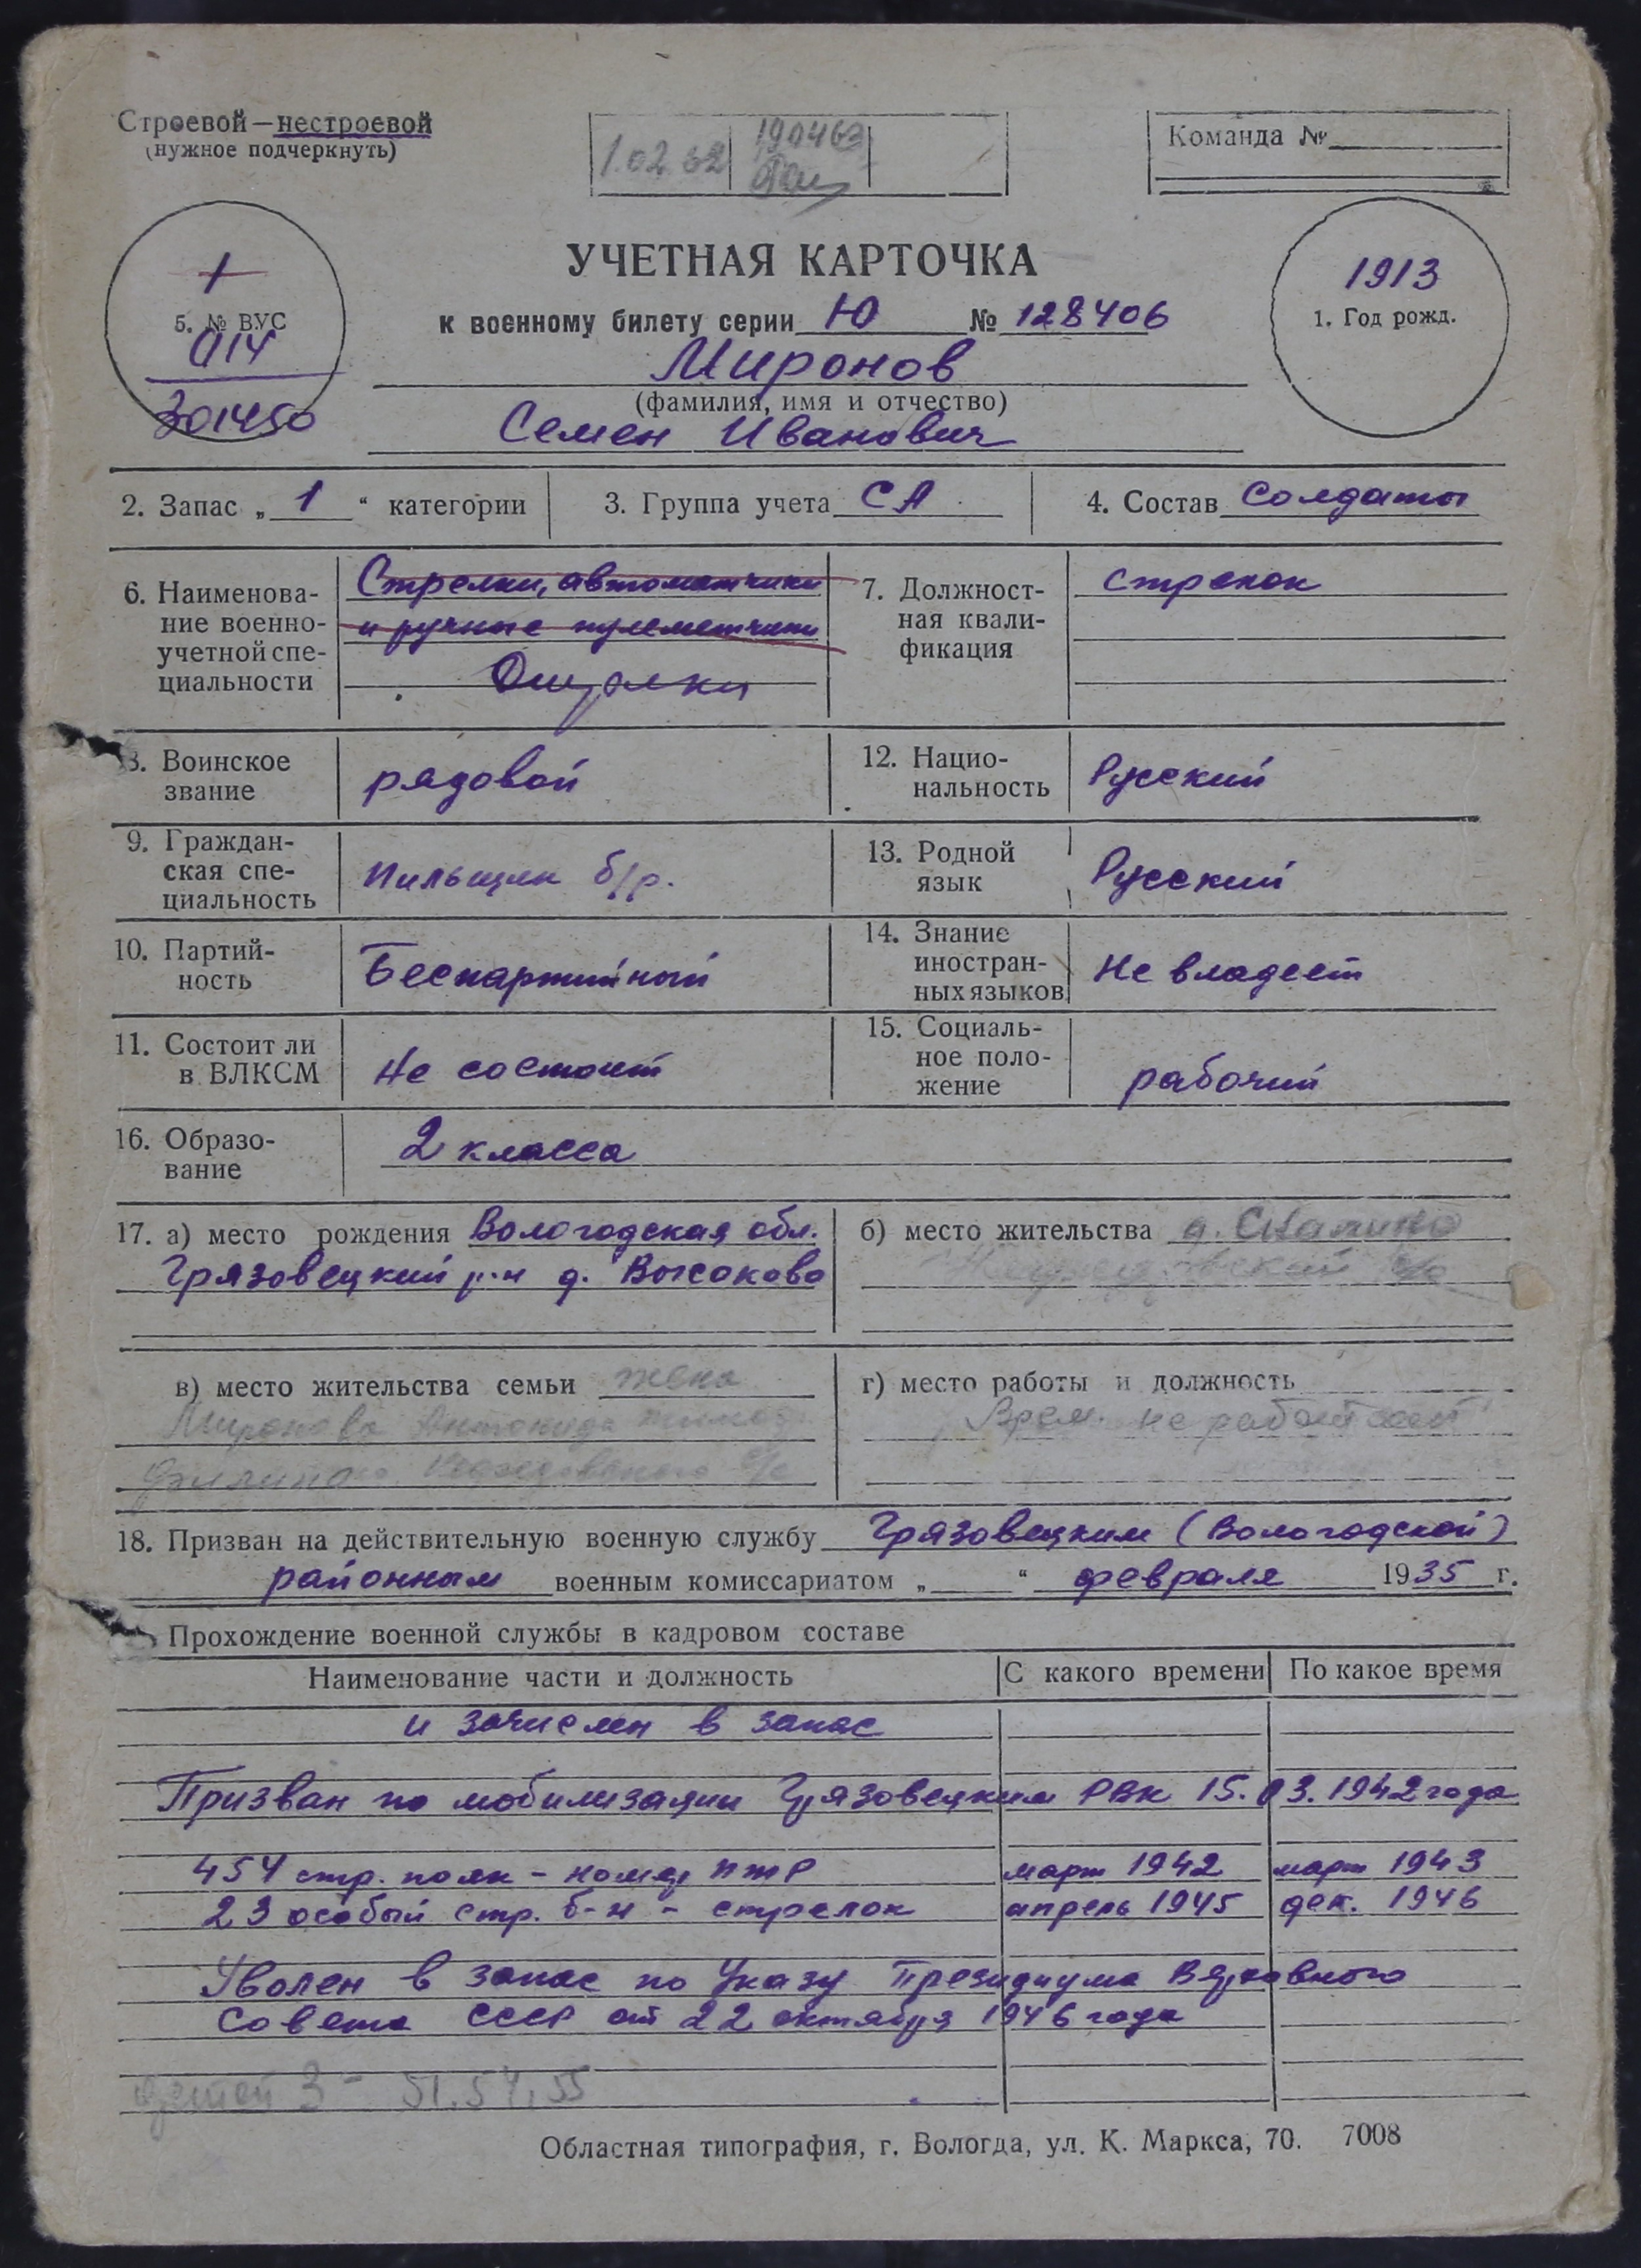 Строевой—нестроевой
(нужное подчеркнуть)
1.02.62
190463
Команда №
5. № ВУС
014
301450
УЧЕТНАЯ КАРТОЧКА
к военному билету серии Ю № 128406
1913
1. Год рожд.
Миронов
(фамилия, имя и отчество)
Семен Иванович
2. Запас „ 1 “ категории
3. Группа учета СА
4. Состав Солдаты
6. Наименова-
ние военно-
учетной спе-
циальности
Стрелки, автоматчики
и ручные пулеметчики
7. Должност-
ная квали-
фикация
стрелок
8. Воинское
звание
рядовой
12. Нацио-
нальность
Русский
9. Граждан-
ская спе-
циальность
Пильщик б/р.
13. Родной
язык
Русский
10. Партий-
ность
Беспартийный
14. Знание
иностран-
ных языков
Не владеет
11. Состоит ли
в ВЛКСМ
Не состоит
15. Социаль-
ное поло-
жение
рабочий
16. Образо-
вание
2 класса
17. а) место рождения Вологодская обл.
Грязовецкий р-н д. Высоково
б) место жительства д.
с/о
в) место жительства семьи жена
Миронова Антонида
с/с
г) место работы и должность
Врем. не работает
18. Призван на действительную военную службу Грязовецким (Вологодской)
районным военным комиссариатом „ “ февраля 1935 г.
Прохождение военной службы в кадровом составе
Наименование части и должность
С какого времени
По какое время
и зачислен в запас
Призван по мобилизации Грязовецким РВК 15.03.1942 года
454 стр. полк - номер ПТР март 1942 март 1943
23 особый стр. б-н - стрелок апрель 1945 дек. 1946
Уволен в запас по Указу Президиума Верховного
Совета СССР от 22 октября 1946 года
детей 3 - 51.54.55
Областная типография, г. Вологда, ул. К. Маркса, 70. 7008